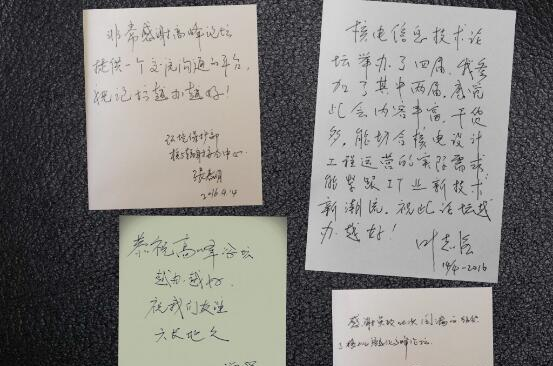 非常感谢高峰论坛
提供一个交流沟通的平台,
祝论坛越办越好!
环境保护部
核与辐射安全中心
2016.9.4
核电信息技术论
坛举办了四届,我参
加了其中两届,感觉
此会内容丰富,干货
多,能切合核电设计
工程运营的实际需求
能紧跟IT业新技术
新潮流。祝此论坛越
办越好!
叶志强
19/4-2016
恭祝高峰论坛
越办越好
祝我们友谊
天长地久
感谢
高峰论坛